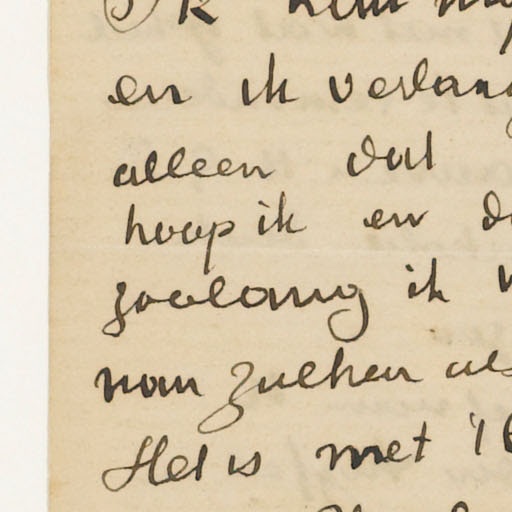 Ik
en ik verlang
alleen dat
hoop ik en
zoolang ik
van zulken als
Het is met